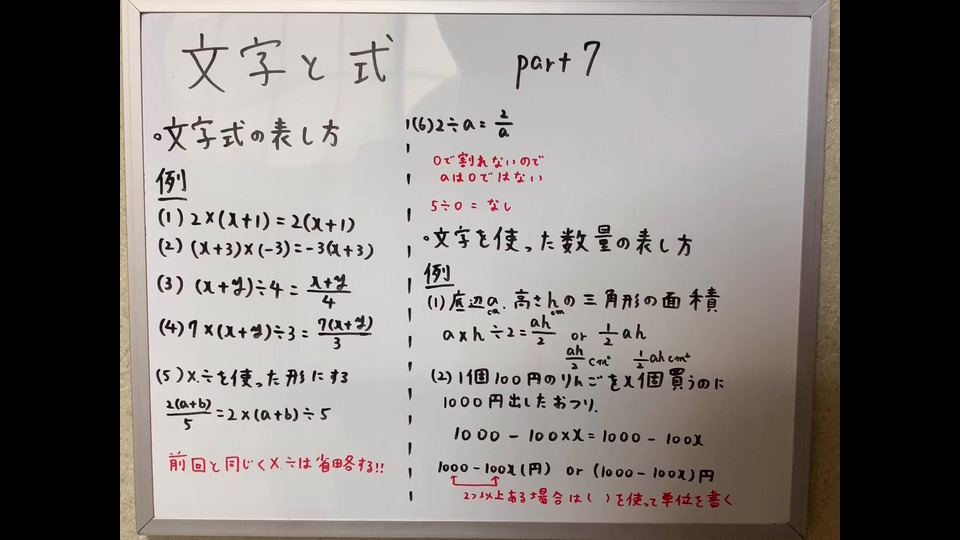 文字と式 part 7
・文字式の表し方
例
(1) 2×(x+1)=2(x+1)
(2) (x+3)×(-3)=-3(x+3)
(3) (x+y)÷4=\frac{x+y}{4}
(4) 7×(x+y)÷3=\frac{7(x+y)}{3}
(5) ×.÷を使った形にする
\frac{2(a+b)}{5}=2×(a+b)÷5
前回と同じく×.÷は省略する!!
(6) 2÷a=\frac{2}{a}
0で割れないので
aは0ではない
5÷0=なし
・文字を使った数量の表し方
例
(1) 底辺a cm.高さh cmの三角形の面積
a×h÷2=\frac{ah}{2} or \frac{1}{2}ah
\frac{ah}{2}cm² \frac{1}{2}ahcm²
(2) 1個100円のりんごをx個買うのに
1000円出したおつり.
1000-100×x=1000-100x
1000-100x(円) or (1000-100x)円
2つ以上ある場合は( )を使って単位を書く